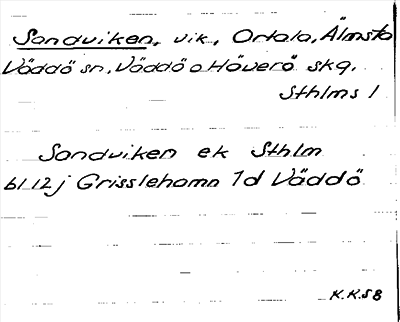 Sandviken, vik, Ortala, Älmsta
Väddö sn, Väddö o Häverö skg,
Sthlms l
Sandviken ek Sthlm
bl 12 j Grisslehamn 1d Väddö
K.K.58